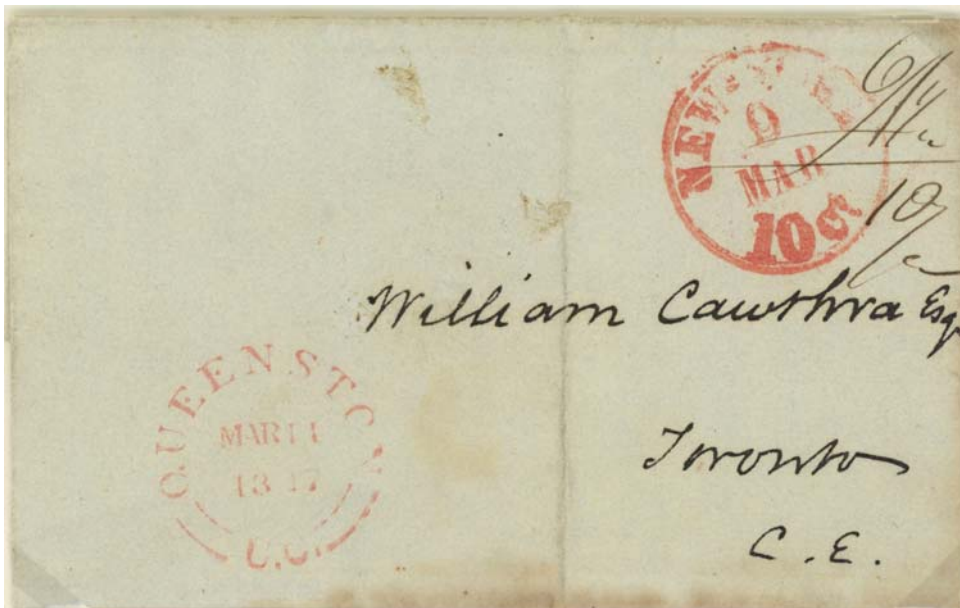 NEW-YORK
9
MAR
10 cts
10
William Cawthra Esq
Toronto
C. E.
QUEENSTON
MAR 11
1847
U.C.